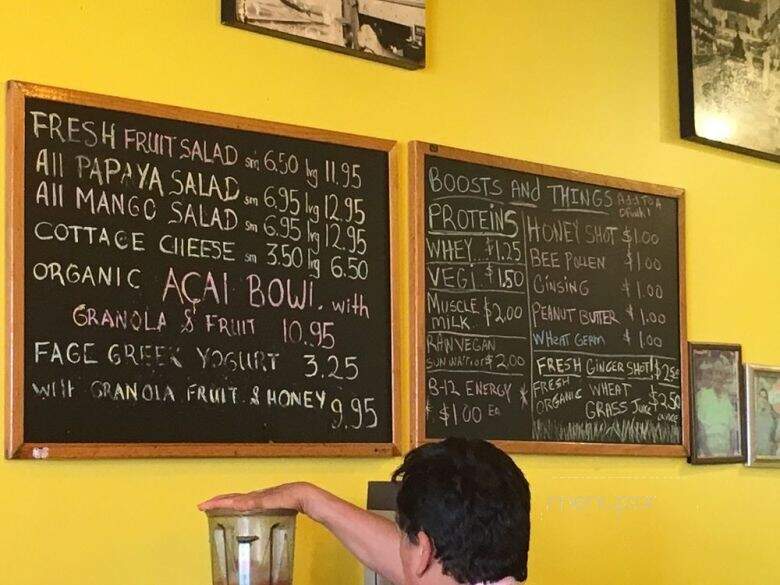 FRESH FRUIT SALAD sm 6.50 lrg 11.95
All PAPAYA SALAD sm 6.95 lrg 12.95
All MANGO SALAD sm 6.95 lrg 12.95
COTTAGE CHEESE sm 3.50 lrg 6.50
ORGANIC AÇAI BOWL. with
GRANOLA & FRUIT 10.95
FAGE GREEK YOGURT 3.25
with GRANOLA FRUIT & HONEY 9.95
BOOSTS AND THINGS Add TO A
Drink!
PROTEINS
WHEY $1.25
VEGI $1.50
MUSCLE $2.00
MILK
RAW VEGAN
SUN WARRIOR $2.00
B-12 ENERGY
* $1.00 EA *
HONEY SHOT $1.00
BEE POLLEN $1.00
GINSING $1.00
PEANUT BUTTER $1.00
WHEAT GERM $1.00
FRESH GINGER SHOT! $2.50
FRESH WHEAT
ORGANIC GRASS JUICE $2.50
OUNCE